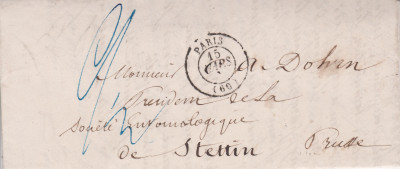 PARIS
15
MARS
(60)
Monsieur Dohrn
President de la
Société Entomologique
de Stettin
Prusse